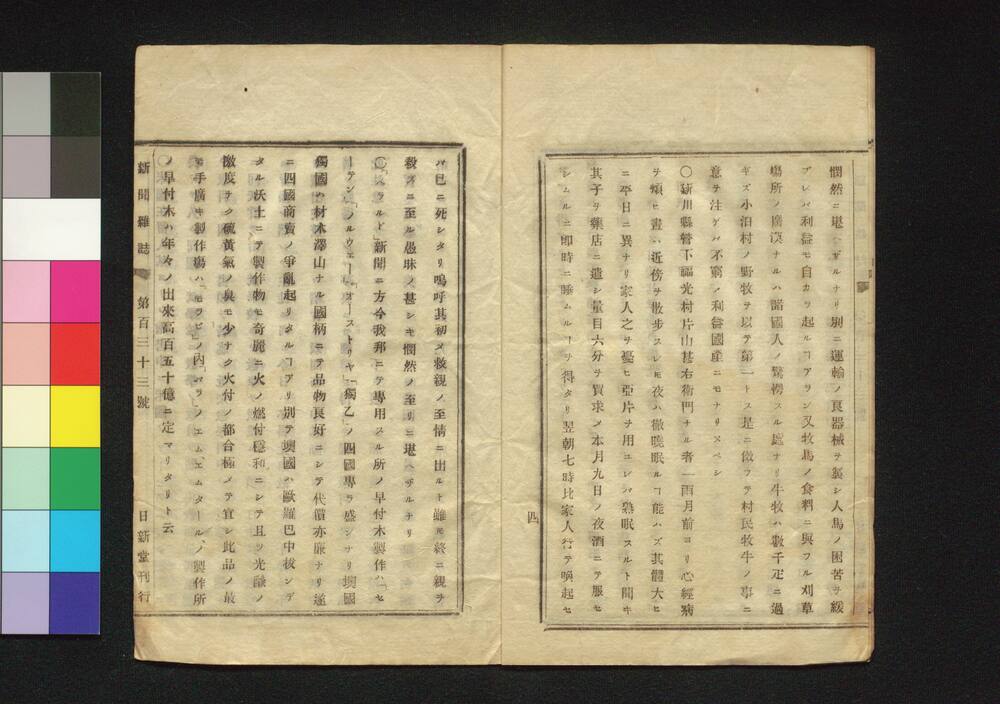 憫然ニ堪ヘザルナリ別ニ運輸ノ良器械ヲ製シ人馬ノ困苦ヲ緩
アレバ利益モ自カラ起ルヿアリン又牧馬ノ食料ニ與フル刈草
塲所ノ廣漠ナルハ諸國人ノ驚愕スル處ナリ牛牧ハ數千疋ニ過
ギズ小泊村ノ野牧ヲ以テ第一トス是ニ倣フテ村民牧牛ノ事ニ
意ヲ注ゲバ不窮ノ利益國産ニモナリヌベシ
〇新川縣管下福光村片山甚右衛門ナル者一兩月前ヨリ心經病
ヲ煩ヒ晝ハ近傍ヲ散歩スレ𪜈夜ハ徹曉眠ルヿ能ハズ其體大ヒ
ニ平日ニ異ナリ家人之ヲ憂ヒ亞片ヲ用ユレバ熟眠スルト聞キ
其子ヲ藥店ニ遣シ量目六分ヲ買求メ本月九日ノ夜酒ニテ服セ
シムルニ即時ニ睡ムルヿヲ得タリ翌朝七時比家人行テ喚起セ
四
バ已ニ死シタリ嗚呼其初メ救親ノ至情ニ出ルト雖𪜈終ニ親ヲ
殺スニ至ル愚昧ノ甚シキ憫然ノ至リニ堪ヘザルナリ
〇「スラルド」新聞ニ方今我邦ニテ專用スル所ノ早付木製作ハ「セ
ーデン」「ノルウェー」「オーストリヤ」「獨乙」ノ四國專ラ盛ンナリ墺國
獨國ハ材木澤山ナル國柄ニテ品物良好ニシテ代價亦廉ナリ遂
ニ四國商賣ノ爭亂起リタルヿアリ別テ墺國ハ歐羅巴中拔ンデ
タル沃土ニテ製作物モ奇麗ニ火ノ燃付穩和ニシテ且ツ光
激度ナク硫黃氣ノ臭モ少ナク火付ノ都合極メテ宜シ此品ノ最
モ手廣キ製作塲ハ「モラビ」ノ内「マラ」ノエム、エムタール」ノ製作所
ノ早付木ハ年々ノ出來高百五十億ニ定マリタリト云
新聞雜誌 第百三十三號 日新堂刊行